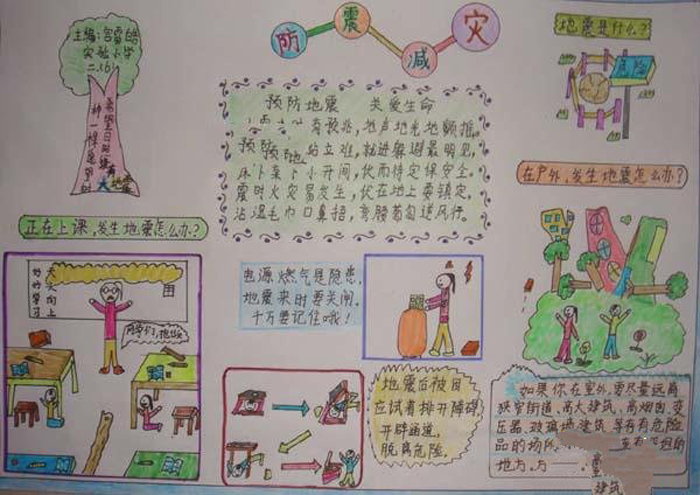 防震减灾
主编:宫雷皓
实验小学
二.(6)
种一棵愿望树
希望日日
预防地震 关爱生命
有预兆,地声地光地颤摇。
站立难,就近躲避最明见,
床下桌下小开间,伏而待定保安全。
震时火灾易发生,伏在地上要镇定,
沾湿毛巾口鼻捂,弯腰匍匐逆风行。
地震是什么?
危险
在户外,发生地震怎么办?
正在上课,发生地震怎么办?
好好学习
天天向上
同学们,
电源燃气是隐患,
地震来时要关闸。
千万要记住哦!
地震后被困
应试着排开障碍,
开辟通道,
脱离危险。
如果你在室外,要尽量远离
狭窄街道,高大建筑,高烟囱,变
压器,玻璃墙建筑,等有危险
品的场所,
地方,方
建筑